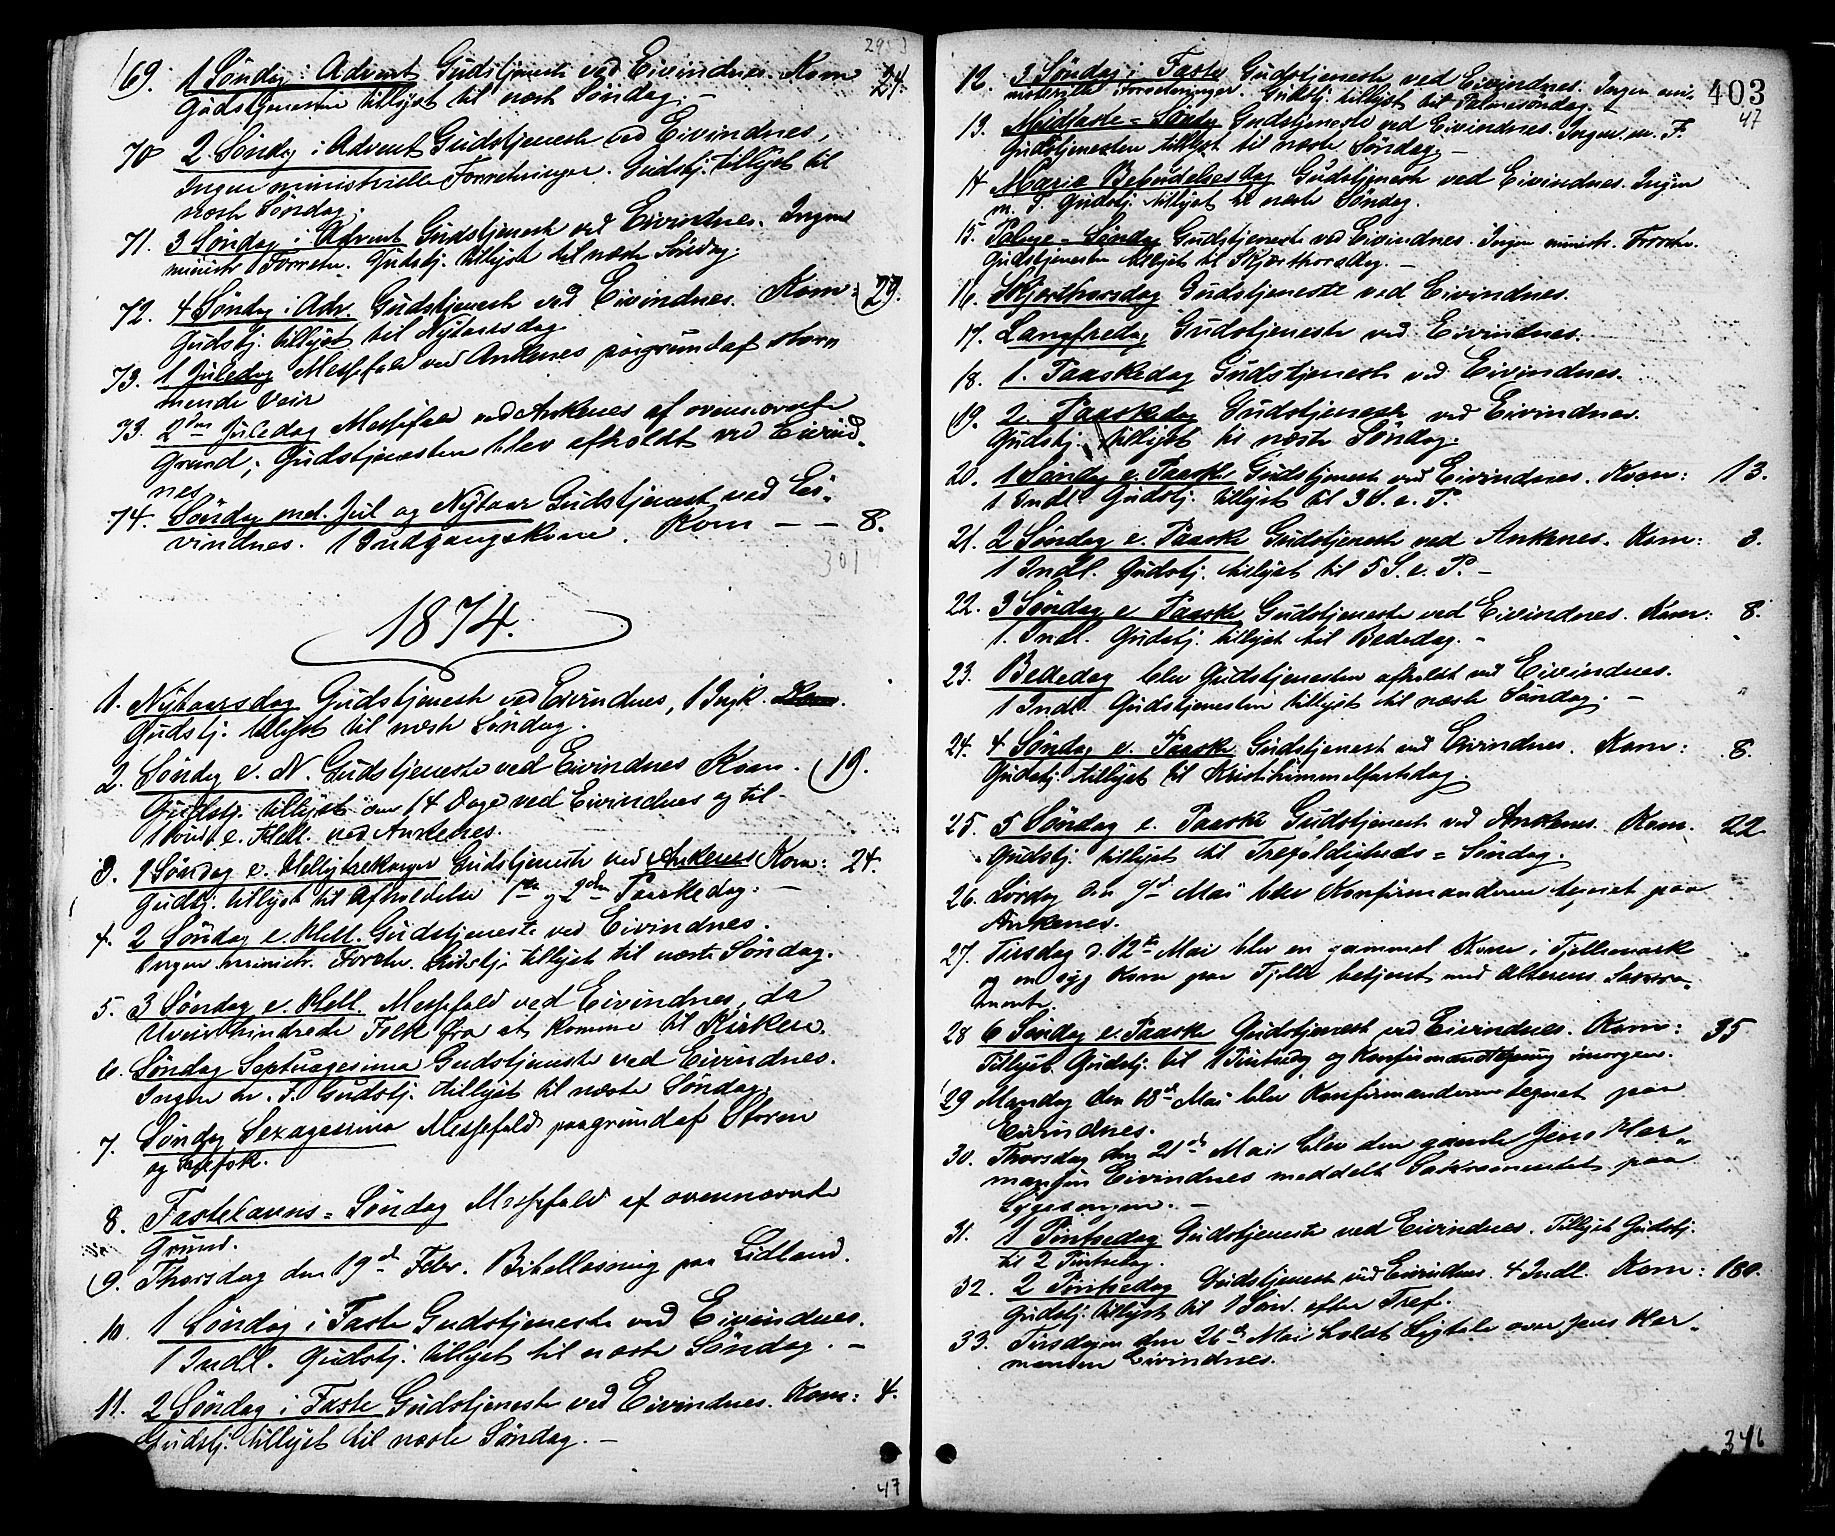 69. 1 Søndag i Advent Gudstjeneste ved Eivindnes. Kom 24.
Gudstjenesten tillyst til næste Søndag. –
70 2. Søndag i Advent Gudstjeneste ved Eivindnes,
Ingen ministrielle Forretninger. Gudstj. tillyst til
næste Søndag.
71. 3 Søndag i Advent Gudstjeneste ved Eivindnes. Ingen
ministr Forretn. Gudstj. tillyst til næste Søndag.
72. 4 Søndag i Adv. Gudstjeneste ved Eivindnes. Kom: 29.
Gudstj. tillyst til Nytaarsdag
73. 1 Juledag Messefald ved Ankenes paagrund af stor
mende Veir
73. 2den Juledag Messefald ved Ankenes af ovennævnte
Grund; Gudstjenesten blev afholdt ved Eivind-
nes
74. Søndag mel. Jul og Nytaar Gudstjenest ved Ei-
vindnes. 1 Indgangskone. Kom – – 8.
301
1874.
1. Nytaarsdag Gudstjenest ved Eivindnes, 1 Ingk.
Gudstj. tillyst til næste Søndag.
2. Søndag e. N. Gudstjeneste ved Eivindnes Kom. 19.
Gudstj. tillyst om 14 Dage ved Eivindnes og til
1 Sønd. e. Hell. ved Ankenes.
3. 1 Søndag e. Helligtrekonger Gudstjeneste ved Ankenes Kom: 24.
Gudstj. tillyst til Afholdelse 1ste og 2den Paaskedag. –
4. 2 Søndag e. Hell. Gudstjeneste ved Eivindnes.
Ingen ministr. Forretn. Gudstj. tillyst til næste Søndag.
5. 3 Søndag e. Hell. Messefald ved Eivindnes, da
Uveir hindrede Folk fra at komme til Kirken.
6. Søndag Septuagesima Gudstjeneste ved Eivindnes.
Ingen m. F. Gudstj. tillyst til næste Søndag.
7. Søndag Sexagesima Messefald paagrund af Storm
og Snefok.
8. Fastelauns-Søndag Messefald af ovennævnte
Grund.
9. Thorsdag den 19de Febr. Bibellæsning paa Lidland.
10. 1 Søndag i Faste Gudstjeneste ved Eivindnes.
1 Indl. Gudstj. tillyst til næste Søndag. –
11. 2 Søndag i Faste Gudstjeneste ved Eivindnes. Kom: 4.
Gudstj. tillyst til næste Søndag. –
47
403
47
12. 3 Søndag i Faste Gudstjeneste ved Eivindnes. Ingen mi-
nisterielle Forretninger. Gudstj. tillyst til Palmesøndag. –
13. Midfaste-Søndag Gudstjeneste ved Eivindnes. Ingen m. F.
Gudstjenesten tillyst til næste Søndag –
14 Mariæ Bebudelses Dag Gudstjeneste ved Eivindnes. Ingen
m. F. Gudstj. tillyst til næste Søndag.
15. Palme-Søndag Gudstjeneste ved Eivindnes. Ingen ministr. Forretn.
Gudstjenesten tillyst til Skjærthorsdag. –
16. Skjærthorsdag Gudstjeneste ved Eivindnes.
17. Langfredag Gudstjeneste ved Eivindnes.
18. 1. Paaskedag Gudstjeneste ved Eivindnes.
19. 2. Paaskedag Gudstjeneste ved Eivindnes.
Gudstj. tillyst til næste Søndag.
20. 1 Søndag e. Paaske Gudstjenest ved Eivindnes. Kom: 13.
1 Indl. Gudstj. tillyst til 3 S. e. P.
21. 2 Søndag e. Paaske Gudstjenest ved Ankenes. Kom: 3.
1 Indl. Gudstj. tillyst til 5 S. e. P. –
22. 3 Søndag e. Paaske Gudstjeneste ved Eivindnes. Kom: 8.
1. Indl. Gudstj. tillyst til Bededag. –
23. Bededag blev Gudstjenesten afholdt ved Eivindnes.
1 Indl. Gudstjenesten tillyst til næste Søndag. –
24. 4 Søndag e. Paaske Gudstjenest ved Eivindnes. Kom: 8.
Gudstj. tillyst til Kristihimmelfartsdag.
25. 5 Søndag e. Paaske Gudstjenest ved Ankenes. Kom. 22
Gudstj. tillyst til Trefoldigheds-Søndag.
26. Lørdag den 9de Mai blev Konfirmanderne tegnet paa
Ankenes.
27. Tirsdag d. 12te Mai blev en gammel Kone i Fjellemark
og en syg Kone paa Fjeld betjent med Alterens Sakra-
mente.
28 6 Søndag e. Paaske Gudstjenest ved Eivindnes. Kom: 35
Tillyst Gudstj. til 1 Pintsedag og Konfirmandtegning imorgen.
29 Mandag den 18de Mai blev Konfirmanderne tegnet paa
Eivindnes.
30. Thorsdag den 21de Mai blev den gamle Jens Her-
mansen Eivindnes meddelt Sakramentet paa
Sygesengen. –
31. 1 Pintsedag Gudstjeneste ved Eivindnes. Tillyst Gudstj.
til 2 Pintsedag.
32. 2 Pintsedag Gudstjenest ved Eivindnes. 4 Indl. Kom: 180.
Gudstj. tillyst til 1 Sønd. efter Tref.
33. Tirsdagen den 26de Mai holdt Ligtale over Jens Her-
mansen Eivindnes.
346